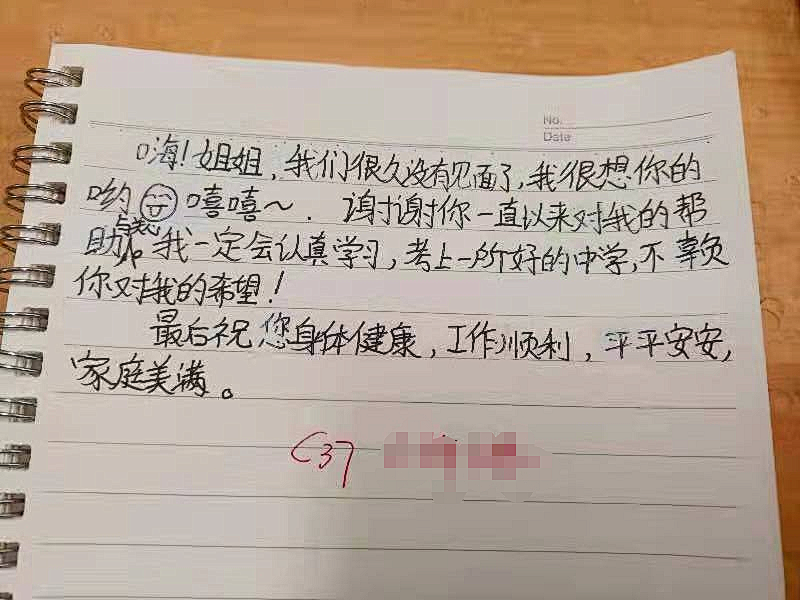 No.
Date
嗨!姐姐,我们很久没有见面了,我很想你的
哟 嘻嘻~. 谢谢你一直以来对我的帮
助 我一定会认真学习,考上一所好的中学,不辜负
你对我的希望!
最后祝您身体健康,工作顺利,平平安安,
家庭美满。
C37